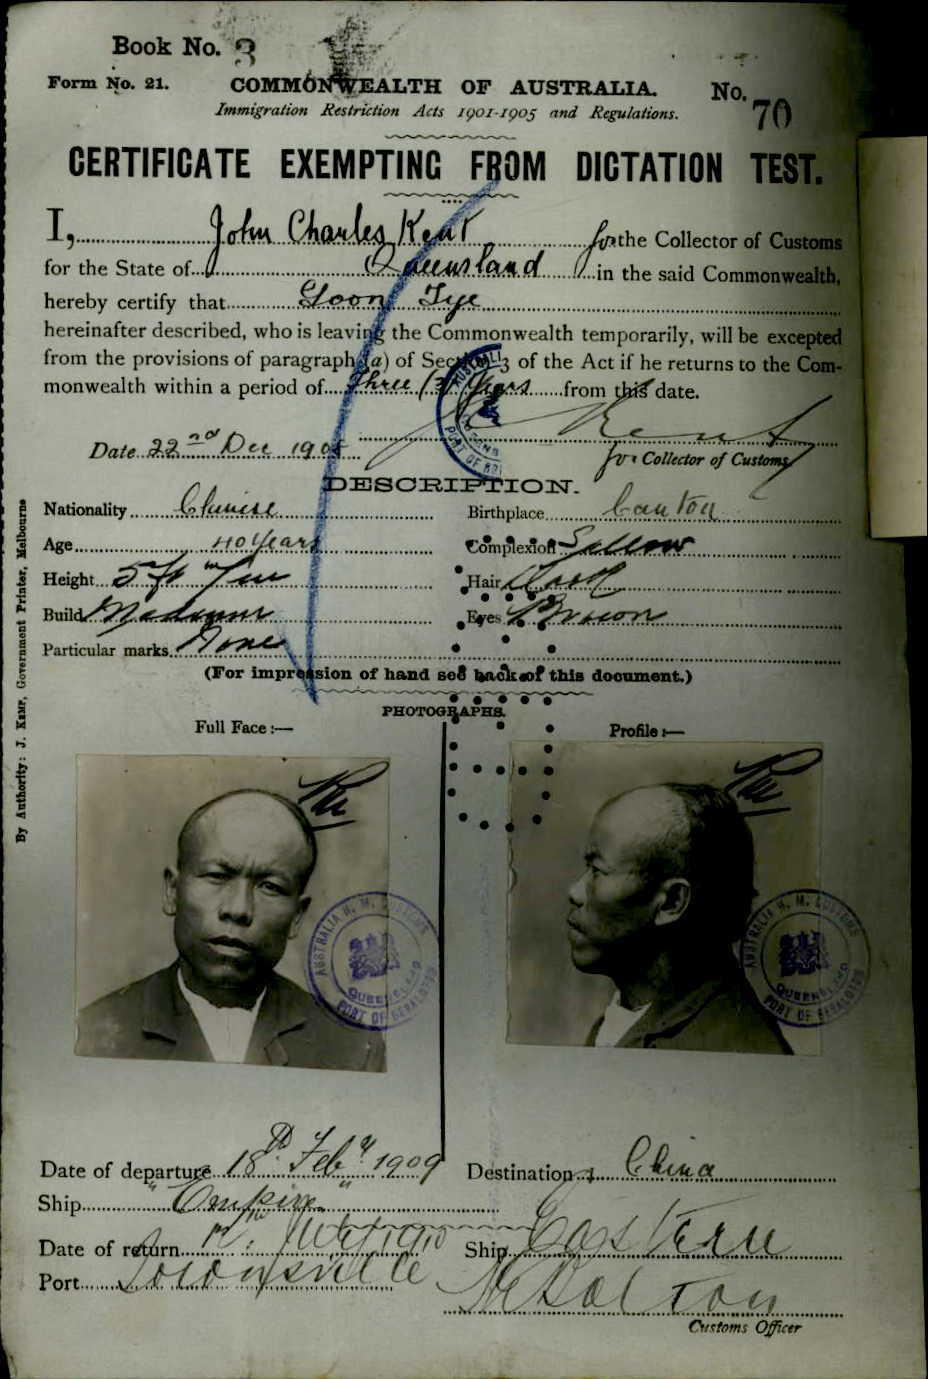 Book No. 3
Form No. 21. COMMONWEALTH OF AUSTRALIA. No. 70
Immigration Restriction Acts 1901-1905 and Regulations.
CERTIFICATE EXEMPTING FROM DICTATION TEST.
I, John Charles Kent for the Collector of Customs
for the State of Queensland in the said Commonwealth,
hereby certify that Goon Tye
hereinafter described, who is leaving the Commonwealth temporarily, will be excepted
from the provisions of paragraph (a) of Section 3 of the Act if he returns to the Com-
monwealth within a period of Three (3) Years from this date.
Date 22nd Dec 1908
J C Kent
for Collector of Customs
DESCRIPTION.
Nationality Chinese Birthplace Canton
Age 40 Years Complexion Sallow
Height 5 ft Hair
Build Medium Eyes Brown
Particular marks None
(For impression of hand see back of this document.)
PHOTOGRAPHS.
Full Face :— Profile :—
AUSTRALIA H. M. CUSTOMS
QUEENSLAND
PORT OF GERALDTON
AUSTRALIA H. M. CUSTOMS
QUEENSLAND
PORT OF GERALDTON
Date of departure 18th Feby 1909 Destination China
Ship "Empire"
Date of return Ship Eastern
Port Townsville
Customs Officer
By Authority: J. Kemp, Government Printer, Melbourne